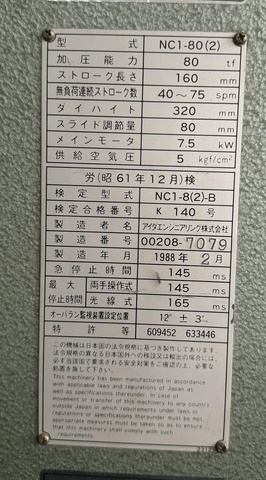 型式 NC1-80(2)
加圧能力 80 tf
ストローク長さ 160 mm
無負荷連続ストローク数 40～75 spm
ダイハイト 320 mm
スライド調節量 80 mm
メインモータ 7.5 kW
供給空気圧 5 kgf/cm²
労(昭61年12月)検
検定型式 NC1-8(2)-B
検定合格番号 K 140号
製造者名 アイダエンジニアリング株式会社
製造番号 00208-7079
製造年月 1988年2月
急停止時間 145 ms
最大停止時間 両手操作式 145 ms
光線式 165 ms
オーバラン監視装置設定位置 12°±3°
特許等 609452 633446
この機械は日本国の法令規格に基づき製作してあります。
法令規格の異なる日本国外への移設又は輸出の場合には、
必ず当該国で要求される安全対策をご確認の上、必要な
処置を施して下さい。
This machinery has been manufactured in accordance
with applicable laws and regulations of Japan as
well as specifications thereunder. In case of
movement or transfer of this machinery to any country
outside Japan in which requirements under laws or
regulations or specifications thereunder may differ,
appropriate measures must be taken so as to ensure
that this machinery shall comply with such
requirements.